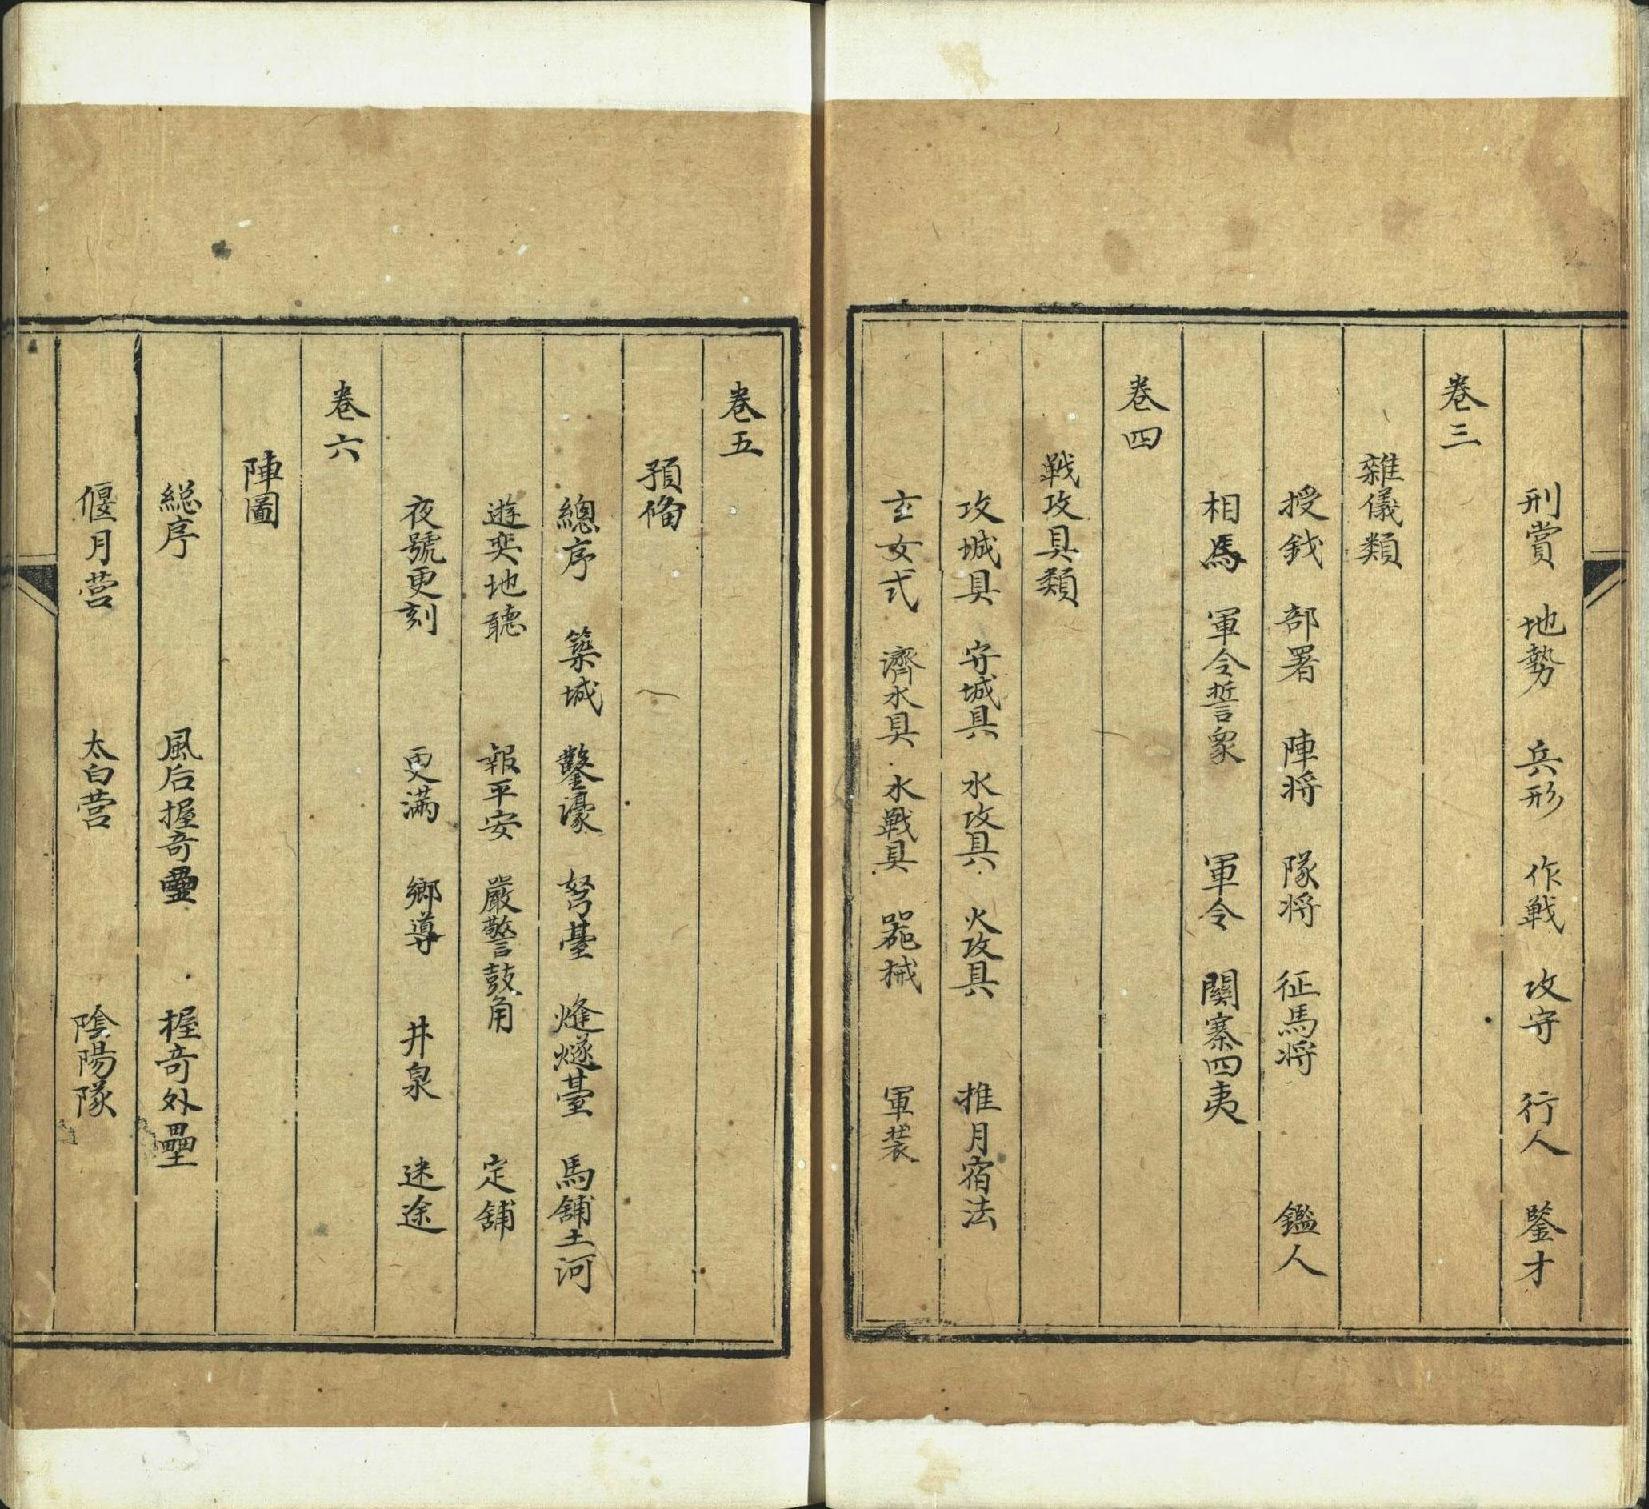 刑賞　地勢　兵形　作戰　攻守　行人　鑒才
卷三
雜儀類
授鉞　部署　陣将　隊将　征馬将　鑑人
相馬　軍令誓衆　軍令　關塞四夷
卷四
戰攻具類
攻城具　守城具　水攻具　火攻具　推月宿法
玄女式　濟水具　水戰具　器械　軍装
卷五
預俻
總序　築城　鑿濠　弩臺　烽燧臺　馬舖土河
遊奕地聽　報平安　嚴警鼓角　定舖
夜號更刻　更滿　鄉導　井泉　迷途
卷六
陣圖
総序　風后握奇壘　握奇外壘
偃月营　太白营　陰陽隊